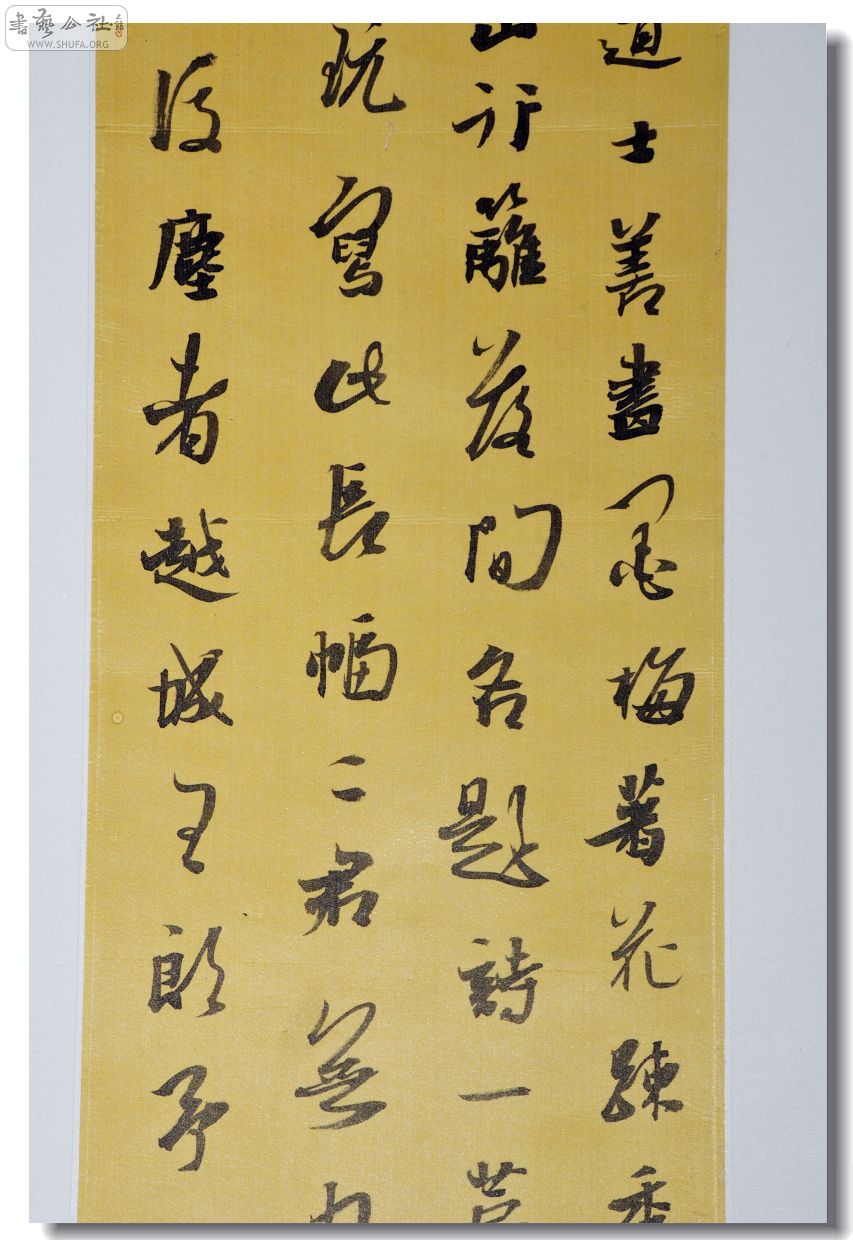 書藝公社
WWW.SHUFA.ORG
道士善畫墨梅著花踈
山行籬落間各題詩一
玩寫此長幅二君無
後塵者越城王郎予